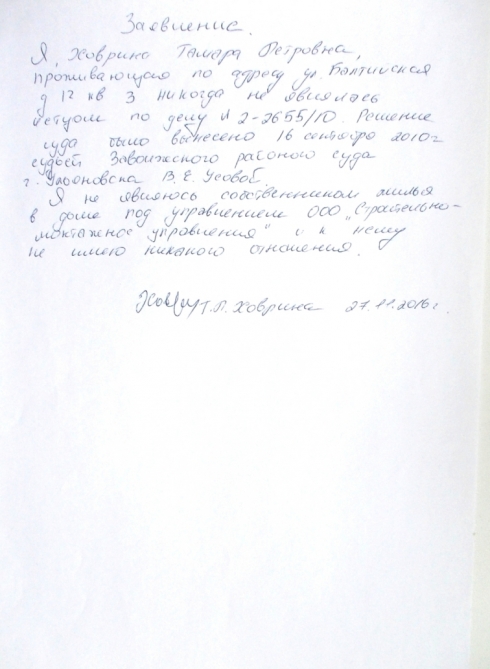 Заявление.
Я, Ховрина Тамара Петровна,
проживающая по адресу ул. Балтийская
д 12 кв 3 никогда не являлась
истцом по делу № 2-2655/10. Решение
суда было вынесено 16 сентября 2010г
судьей Заволжского районого суда
г. Ульяновска В.Е. Усовой.
Я не являюсь собственником жилья
в доме под управлением ООО „Строительно-
монтажное управления" и к нему
не имею никакого отношения.
Т.П. Ховрина 27.11.2016г.